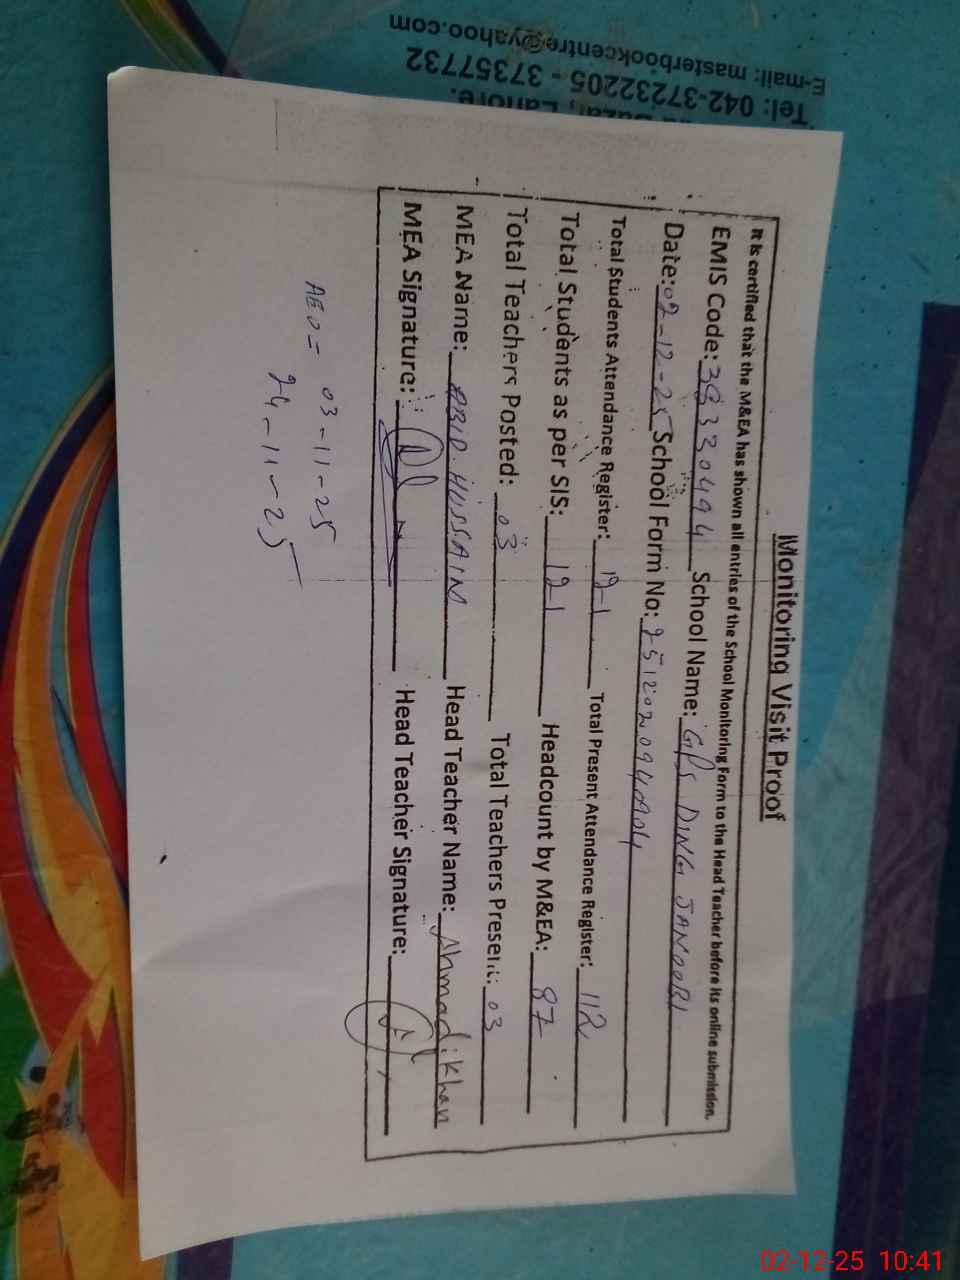 Monitoring Visit Proof
It is certified that the M&EA has shown all entries of the School Monitoring Form to the Head Teacher before its online submission.
EMIS Code: 38330494 School Name: GPS DING JANOOBI
Date: 02-12-25 School Form No:
Total Students Attendance Register: 121 Total Present Attendance Register: 112
Total Students as per SIS: 121 Headcount by M&EA: 87
Total Teachers Posted: 03 Total Teachers Present: 03
MEA Name: ABID HUSSAIN Head Teacher Name: Ahmad Khan
MEA Signature: Head Teacher Signature:
AEO = 03-11-25
24-11-25
Lahore.
Tel: 042-37232205 - 37357732
E-mail: masterbookcentre@yahoo.com
02-12-25 10:41